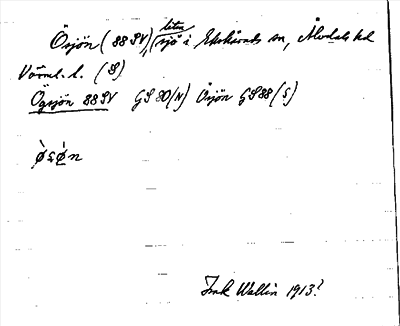 Örsjön (88 SV), liten sjö i Ekshärads sn, Älvdals hd
Värml. l. (S)
Ögsjön 88 SV GS 80 (N) Örsjön GS 88 (S)
Wallin 1913?